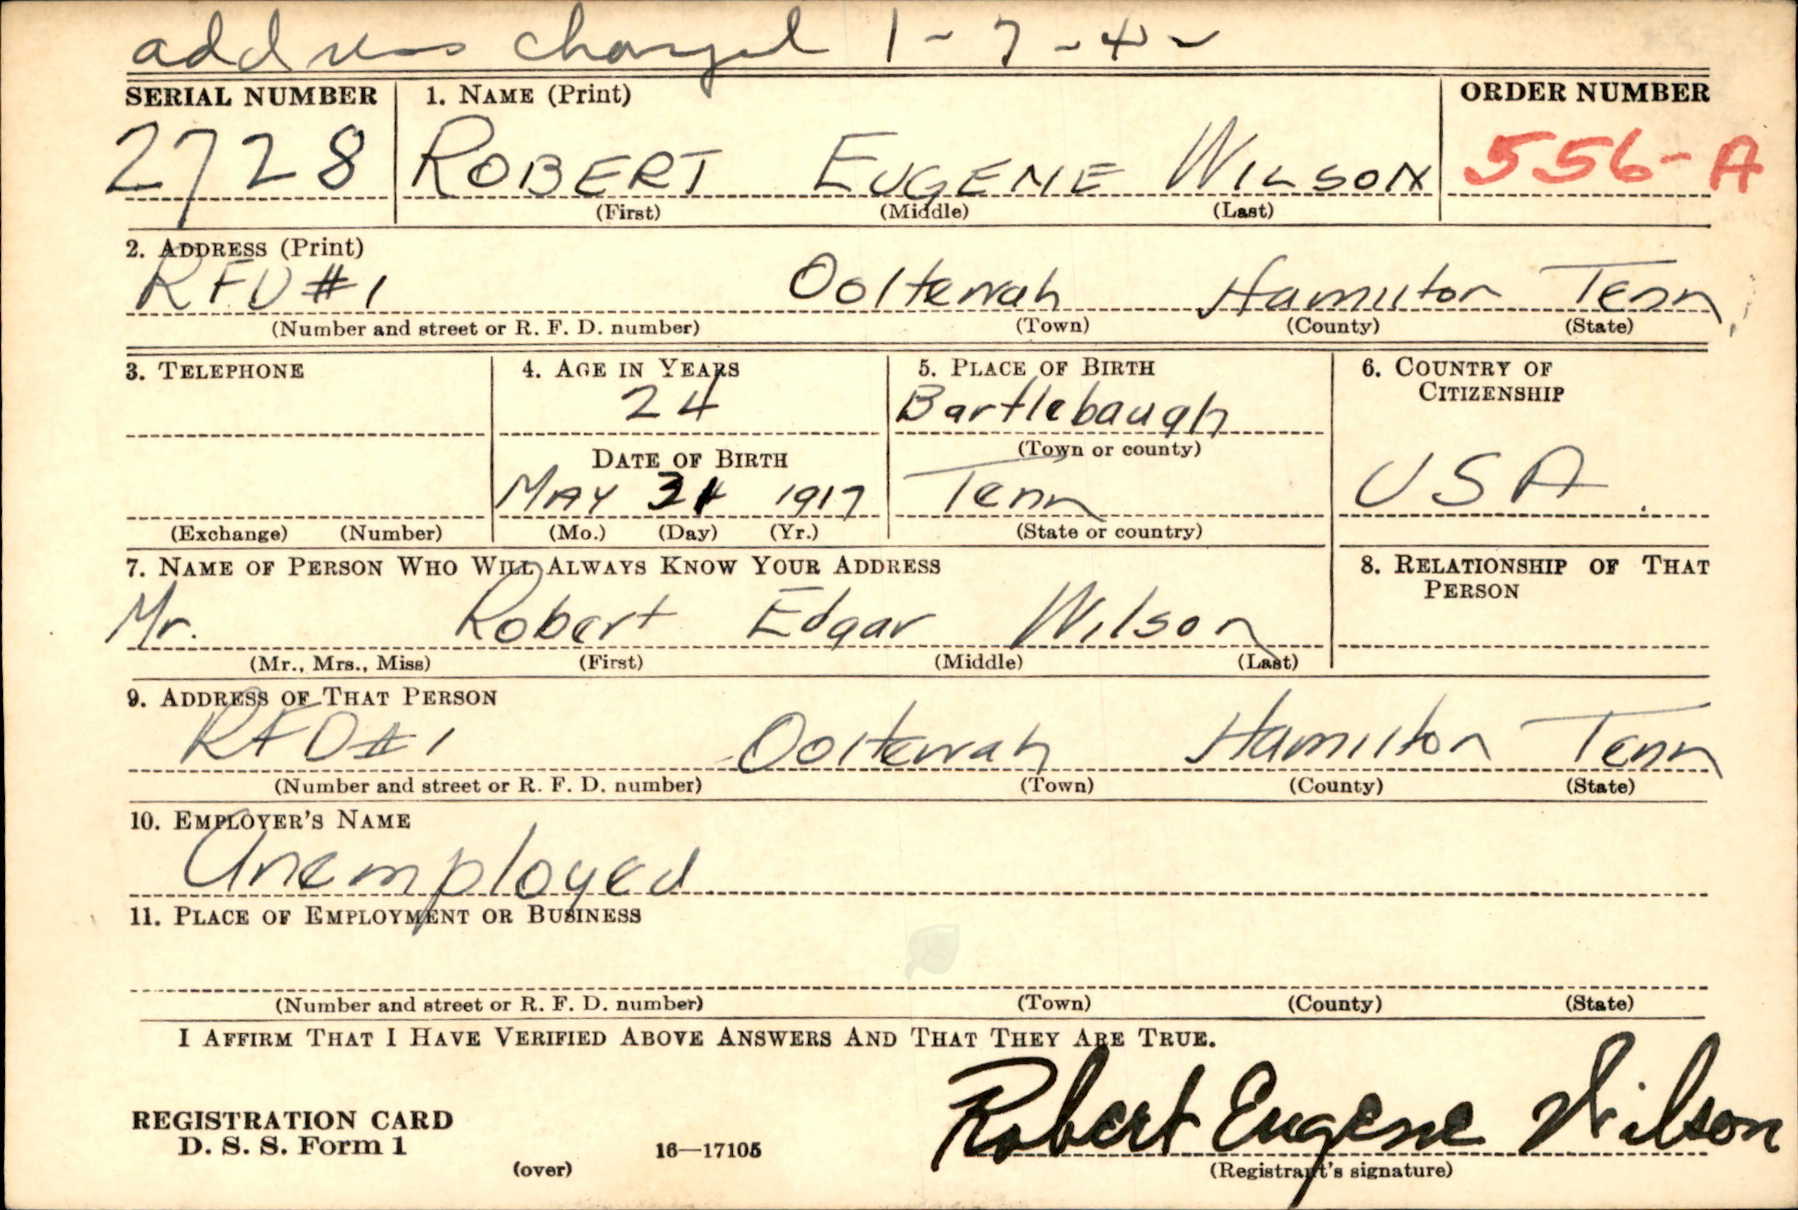 address changed 1-7-42
SERIAL NUMBER 1. NAME (Print) ORDER NUMBER
2728 ROBERT EUGENE WILSON 556-A
(First) (Middle) (Last)
2. ADDRESS (Print)
RFD#1 Ooltewah Hamilton Tenn
(Number and street or R. F. D. number) (Town) (County) (State)
3. TELEPHONE 4. AGE IN YEARS 5. PLACE OF BIRTH 6. COUNTRY OF
CITIZENSHIP
24 Bartlebaugh
(Town or county)
DATE OF BIRTH
MAY 1917 Tenn USA.
(Exchange) (Number) (Mo.) (Day) (Yr.) (State or country)
7. NAME OF PERSON WHO WILL ALWAYS KNOW YOUR ADDRESS 8. RELATIONSHIP OF THAT
PERSON
Mr. Robert Edgar Wilson
(Mr., Mrs., Miss) (First) (Middle) (Last)
9. ADDRESS OF THAT PERSON
RFD#1 Ooltewah Hamilton Tenn
(Number and street or R. F. D. number) (Town) (County) (State)
10. EMPLOYER'S NAME
Unemployed
11. PLACE OF EMPLOYMENT OR BUSINESS
(Number and street or R. F. D. number) (Town) (County) (State)
I AFFIRM THAT I HAVE VERIFIED ABOVE ANSWERS AND THAT THEY ARE TRUE.
REGISTRATION CARD
D. S. S. Form 1
(over) 16—17105
Robert Eugene Wilson
(Registrant's signature)